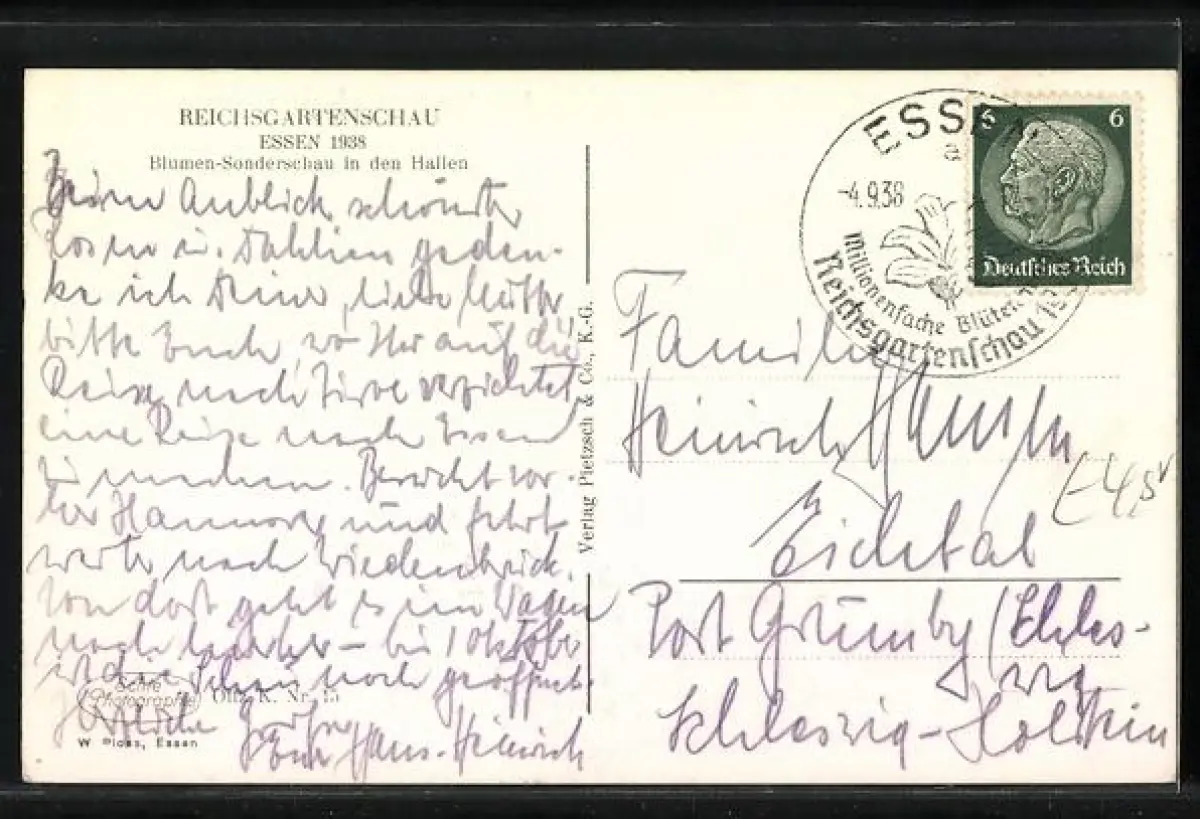 REICHSGARTENSCHAU
ESSEN 1938
Blumen-Sonderschau in den Hallen
Beim Anblick schönster
Rosen u. Dahlien geden-
ke ich Deiner, liebe Mutter
bitte Euch, wo Ihr auf die
Reise nach verzichtet,
eine Reise nach Essen
zu machen. vor-
her Hannover und fahrt
weiter nach Wiedenbrück.
Von dort geht es im Wagen
nach – bis 1 Oktober
ist die Schau noch geöffnet.
Herzliche Grüße
Euer Hans-Heinrich
Echte
Photographie
Off. K. Nr. 15
W Ploss, Essen
Verlag Pietzsch & Co., K.-G.
ESSEN
-4.9.38
Millionenfache Blüten
Reichsgartenschau
6 6
Deutsches Reich
Familie
Heinrich Hansen
Eichtal
Post Grumby / Schles-
wig
Schleswig-Holstein